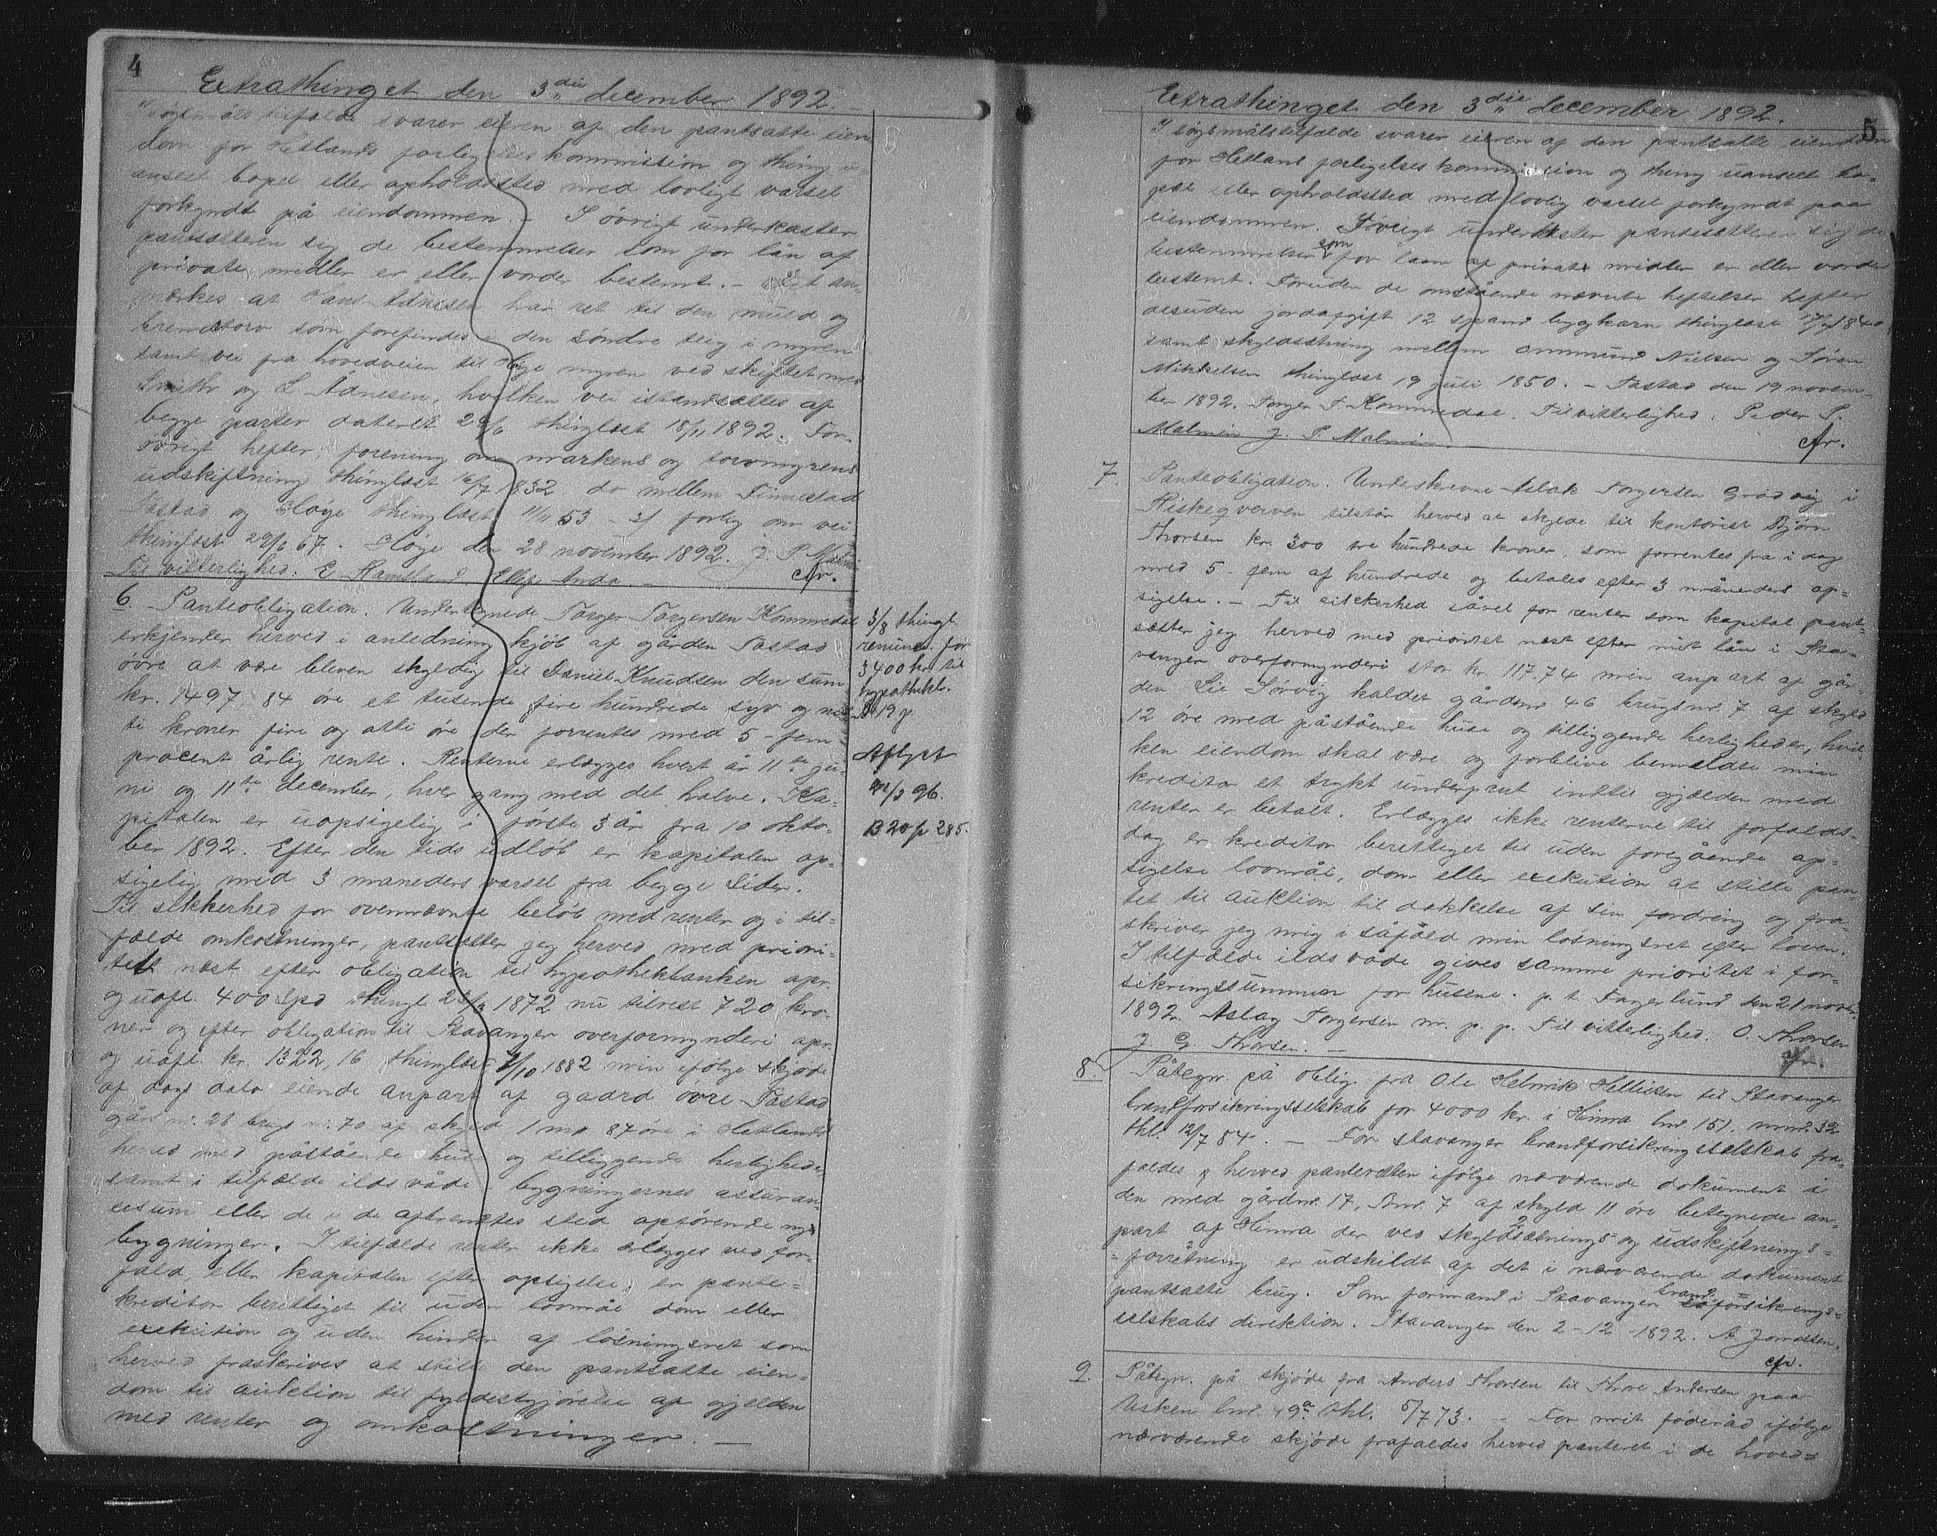 4
Extrathinget den 3die december 1892.
I søgsmåls tilfælde svarer eieren af den pantsatte eien
dom for Hetlands forligelses kommission og thing u-
anseet bopel eller opholdssted med lovligt varsel
forkyndt på eiendommen. – I øvrigt underkaster
pantsætteren sig de bestemmelser som for lån af
private midler er eller vorder bestemt. – Det an-
mærkes at Hans Adnesen har ret til den muld og
brendtorv som forefindes i den søndre teig i myren
samt vei fra hovedveien til Høje myren ved skiftet med
Smith og L. Adnesen, hvilken vei istandsættes af
begge parter dateret 29/6 thinglæst 18/11 1892. For-
øvrigt hefter forening om markens og torvmyrens
udskiftning thinglæst 16/7 1832. do mellem Finnestad
Tastad og Høje thinglæst 11/11 53 – 2/ forlig om vei
thinglæst 29/6 67. Høje den 28 november 1892. J. P. Malmin
Til vitterlighed: E. Hamsland Ellef Anda. – cfr.
6 – Panteobligation. Undertegnede Torger Torgersen Kommedal
erkjender herved i anledning kjøb af gården Tastad
øvre at være bleven skyldig til Daniel Knudsen den sum
kr. 1497, 84 øre et tusende fire hundrede syv og nit-
ti kroner fire og otti øre der forrentes med 5 – fem
procent årlig rente. Renterne erlægges hvert år 11te ju-
ni og 11te december, hver gang med det halve. Ka-
pitalen er uopsigelig i første 3 år fra 10 okto-
ber 1892. Efter den tids udløb er kapitalen op-
sigelig med 3 maneders varsel fra begge Sider.
Til sikkerhed for ovennævnte beløb med renter og i til-
fælde omkostninger, pantsætter jeg herved med priori-
tet næst efter obligation til hypothekbanken opr.
og uofl. 400 Spd thingl. 1872 nu tilrest 720 kro-
ner og efter obligation til Stavanger overformynderi opr.
og uofl. kr. 1322,16 thinglæst 7/10 1882 min ifølge skjøde
af dags dato eiende anpart af gaard øvre Tastad
gård nr. 28 brugs nr. 70 af skyld 1 mrk 87 øre i Hetlands
herred med påstående huse og tilliggende herligheder
samt i tilfælde ildsvåde bygningernes assuran-
cesum eller de i de afbrendtes sted opførende nye
bygninger. I tilfælde renter ikke erlægges ved for-
fald, eller kapitalen efter opsigelse, er pante-
kreditor berettiget til uden lovmål dom eller
exekution og uden hinder af løsningsret som
herved fraskrives at stille den pantsatte eien-
dom til auktion til fyldestgjørelse af gjelden
med renter og omkostninger. –
3/8 thingl.
renunc. for
3400 kr. til
hypothekb.
B 19 p
Aflyst
/3 96.
B 20 p 285.
5
Extrathinget den 3die december 1892.
I søgsmålstilfælde svarer eieren af den pantsatte eiendom
for Hetlans forligelses kommission og thing uanseet bo-
pæl eller opholdssted med lovlig varsel forkyndt paa
eiendommen. Iøvrigt underkaster pantesætteren sig de
bestemmelser som for laan af private midler er eller vorder
bestemt. Foruden de omstående nævnte heftelser hefter
desuden jordafgift 12 spand bygkorn thinglæst 17/7 1840
samt skyldsetning mellem Ommund Nielsen og Søren
Mikkelsen thinglæst 19 juli 1850. – Tastad den 19 novem-
ber 1892. Torger T. Kommedal. Til vitterlighed: Peder P.
Malmin J. P. Malmin cfr.
7 Panteobligation. Underskrevne Aslak Torgersen Grødvig i
Riskeqverven tilstår herved at skylde til kontorist Bjørn
Thorsen kr. 300 tre hundrede kroner, som forrentes fra i dag
med 5 – fem af hundrede og betales efter 3 måneders op-
sigelse. – Til sikkerhed såvel for renter som kapital pant-
sætter jeg herved med prioritet næst efter mit lån i Sta-
vanger overformynderi stor kr. 117.74 min anpart af går-
den Lie Sørvig kaldet gårdsnr. 46 brugsnr. 7 af skyld
12 øre med påstående huse og tilliggende herligheder, hvil-
ken eiendom skal være og forblive bemeldte min
kreditor et trykt underpant indtil gjælden med
renter er betalt. Erlægges ikke renterne til forfalds-
dag er kreditor berettiget til uden foregående op-
sigelse lovmål, dom eller exekution at stille pan-
tet til auktion til dækkelse af sin fordring og fra-
skriver jeg mig i såfald min løsningsret efter loven.
I tilfælde ildsvåde gives samme prioritet i for-
sikringssummen for husene. p. t. Fagerlund den 21 novbr.
1892. Aslag Torgersen m. p. p. Til vitterlighed. O. Thorsen
J G. Thorsen. – cfr.
8. Påtegn. på oblig. fra Ole Helmik Hellisen til Stavanger
brandforsikringsselskab for 4000 kr. i Himra lnr. 151. mnr. 32
thl. 12/7 84. – For Stavanger brandforsikringsselskab fra-
faldes herved panteretten ifølge nærværende dokument i
den med gårdnr. 17, Bnr. 7 af skyld 11 øre betegnede an-
part af Himra der ved skyldsætnings- og udskiftnings-
forretning er udskildt af det i nærværende dokument
pantsatte brug. Som formand i Stavanger brandforsikrings-
selskabs direktion. Stavanger den 2–12–1892. A Jonassen.
cfr.
9. Påtegn. på skjøde fra Anders Thorsen til Thore Andersen paa
Usken lnr. 49a thl. 5/7 73. – For mit føderåd ifølge
nærværende skjøde frafaldes herved panteret i de hoved-